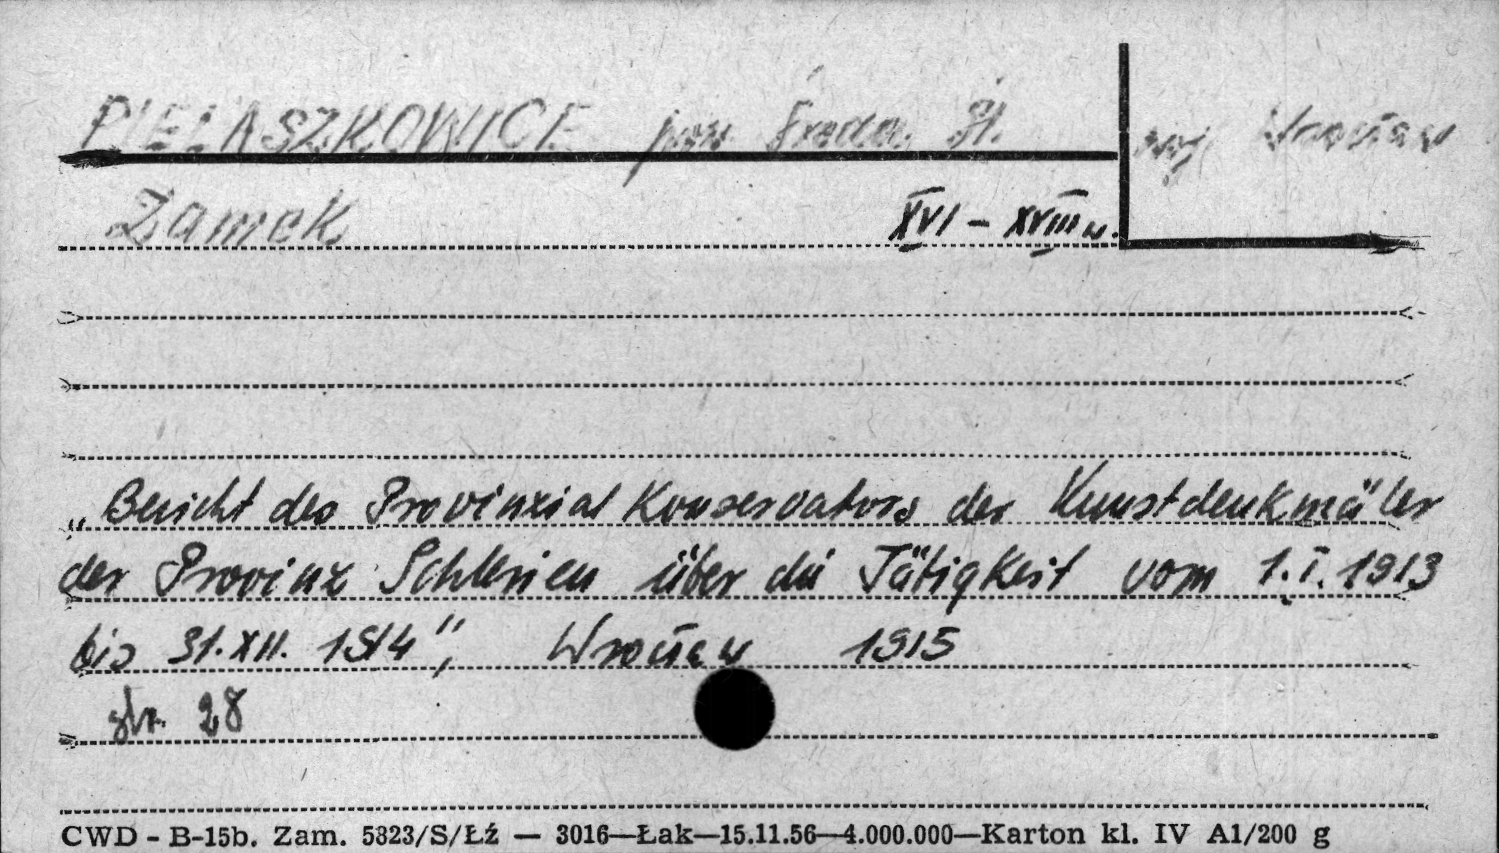 PIELASZKOWICE pow Środa Śl. woj. Wrocław
Zamek XVI – XVIII w.
„Bericht des Provinzial Konservators der Kunstdenkmäler
der Provinz Schlesien über die Tätigkeit vom 1.I.1913
bis 31.XII. 1914", Wrocław 1915
str. 28
CWD - B-15b. Zam. 5823/S/Łź — 3016—Łak—15.11.56—4.000.000—Karton kl. IV A1/200 g